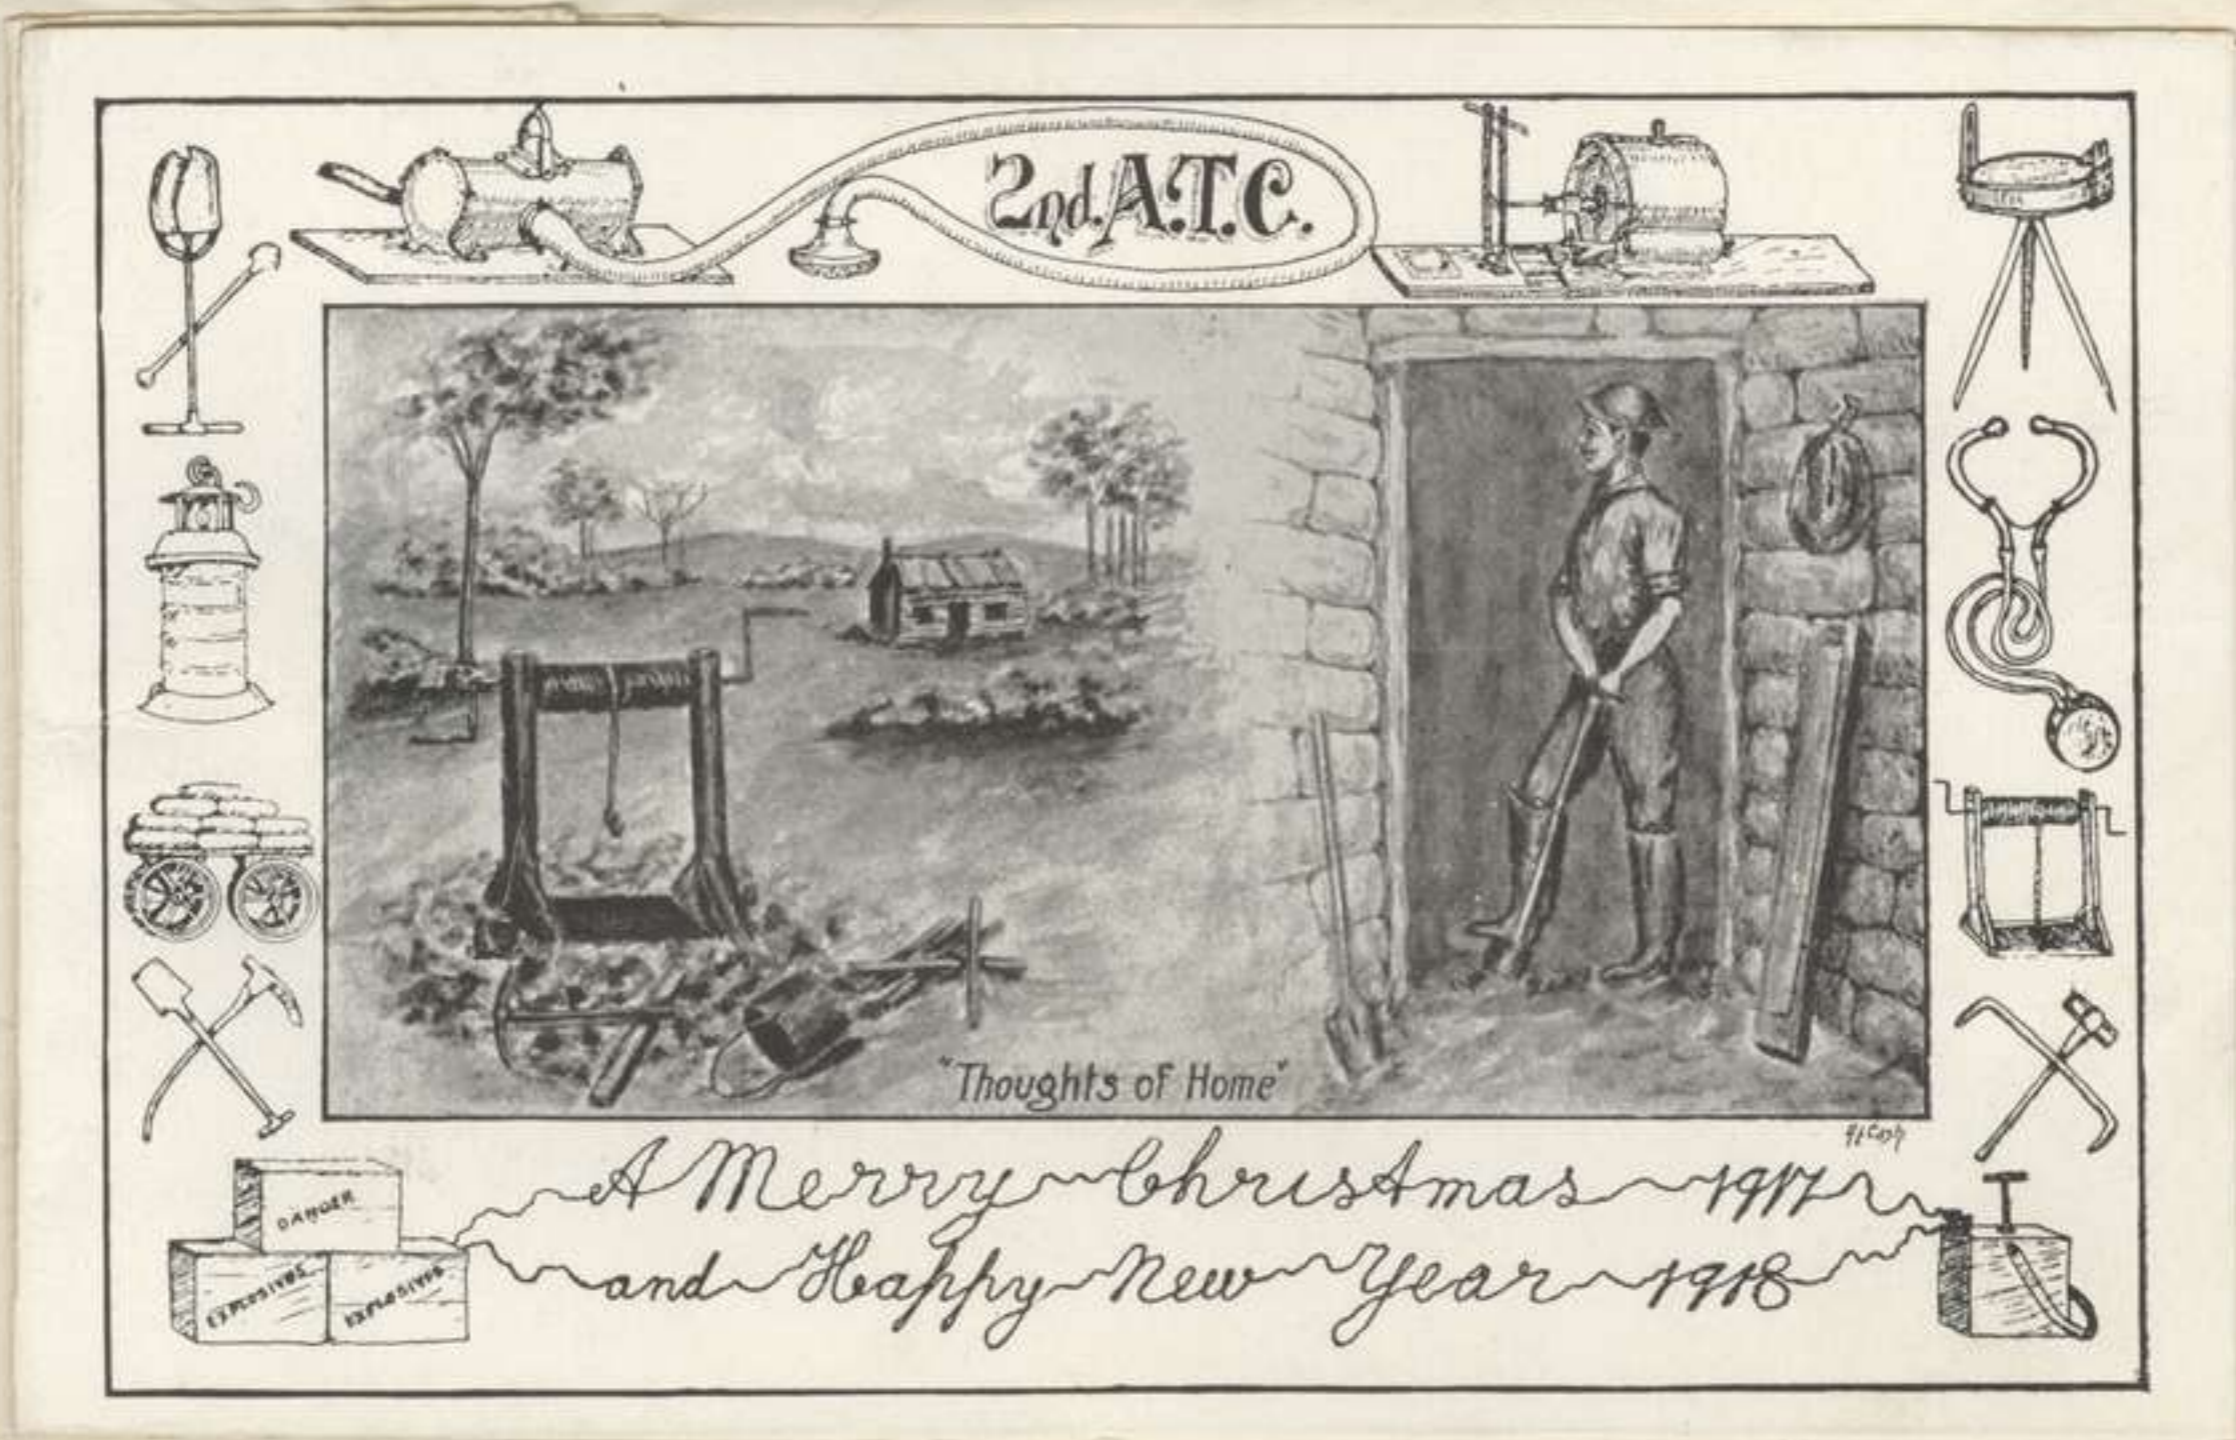 2nd. A.T.C.
"Thoughts of Home"
A Merry Christmas 1917
and Happy New Year 1918
DANGER
EXPLOSIVES
EXPLOSIVES